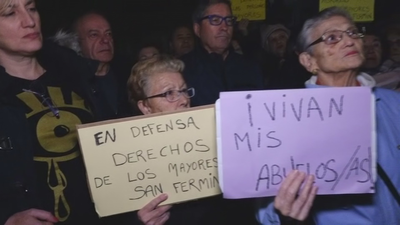 EN DEFENSA
DERECHOS
DE LOS MAYORES
SAN FERMIN
¡VIVAN
MIS
ABUELOS/AS!